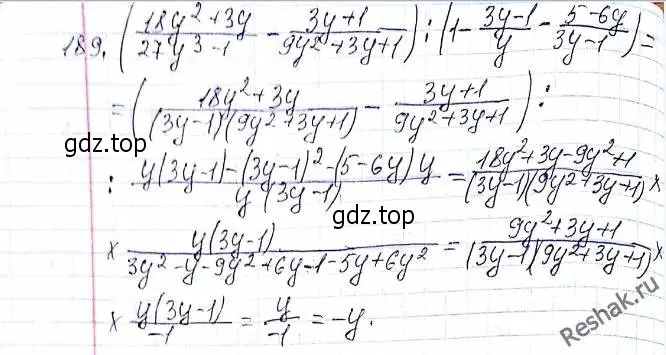 189. ( (18y² + 3y)/(27y³ - 1) - (3y + 1)/(9y² + 3y + 1) ) : ( 1 - (3y - 1)/y - (5 - 6y)/(3y - 1) ) =
= ( (18y² + 3y)/((3y - 1)(9y² + 3y + 1)) - (3y + 1)/(9y² + 3y + 1) ) :
gdz.top
gdz.top
: (y(3y - 1) - (3y - 1)² - (5 - 6y)y)/(y(3y - 1)) = (18y² + 3y - 9y² + 1)/((3y - 1)(9y² + 3y + 1)) ×
gdz.top
× (y(3y - 1))/(3y² - y - 9y² + 6y - 1 - 5y + 6y²) = (9y² + 3y + 1)/((3y - 1)(9y² + 3y + 1)) ×
× (y(3y - 1))/(-1) = y/(-1) = -y.
Reshak.ru